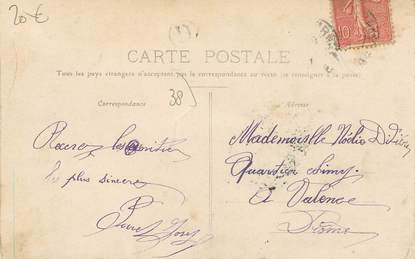 20 €
CARTE POSTALE
Tous les pays étrangers n'acceptent pas la correspondance au recto (se renseigner à la poste)
Correspondance
38
Adresse
Recevez les
les plus sincères
Mademoiselle
Quartier
A Valence
Drôme
10